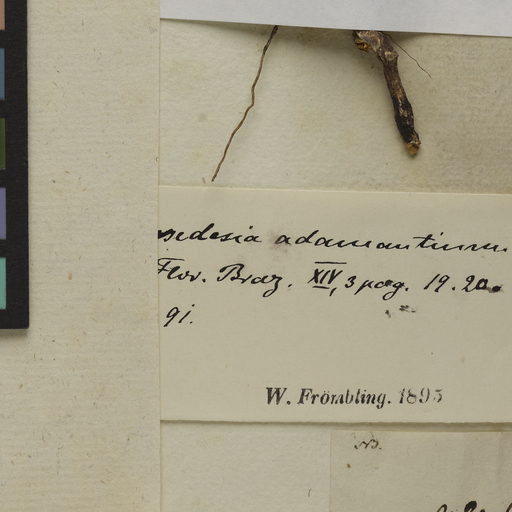 sedesia adamantinum.
Flor. Braz. XIV, 3 pag. 19. 20.
91.
W. Frömbling. 1895